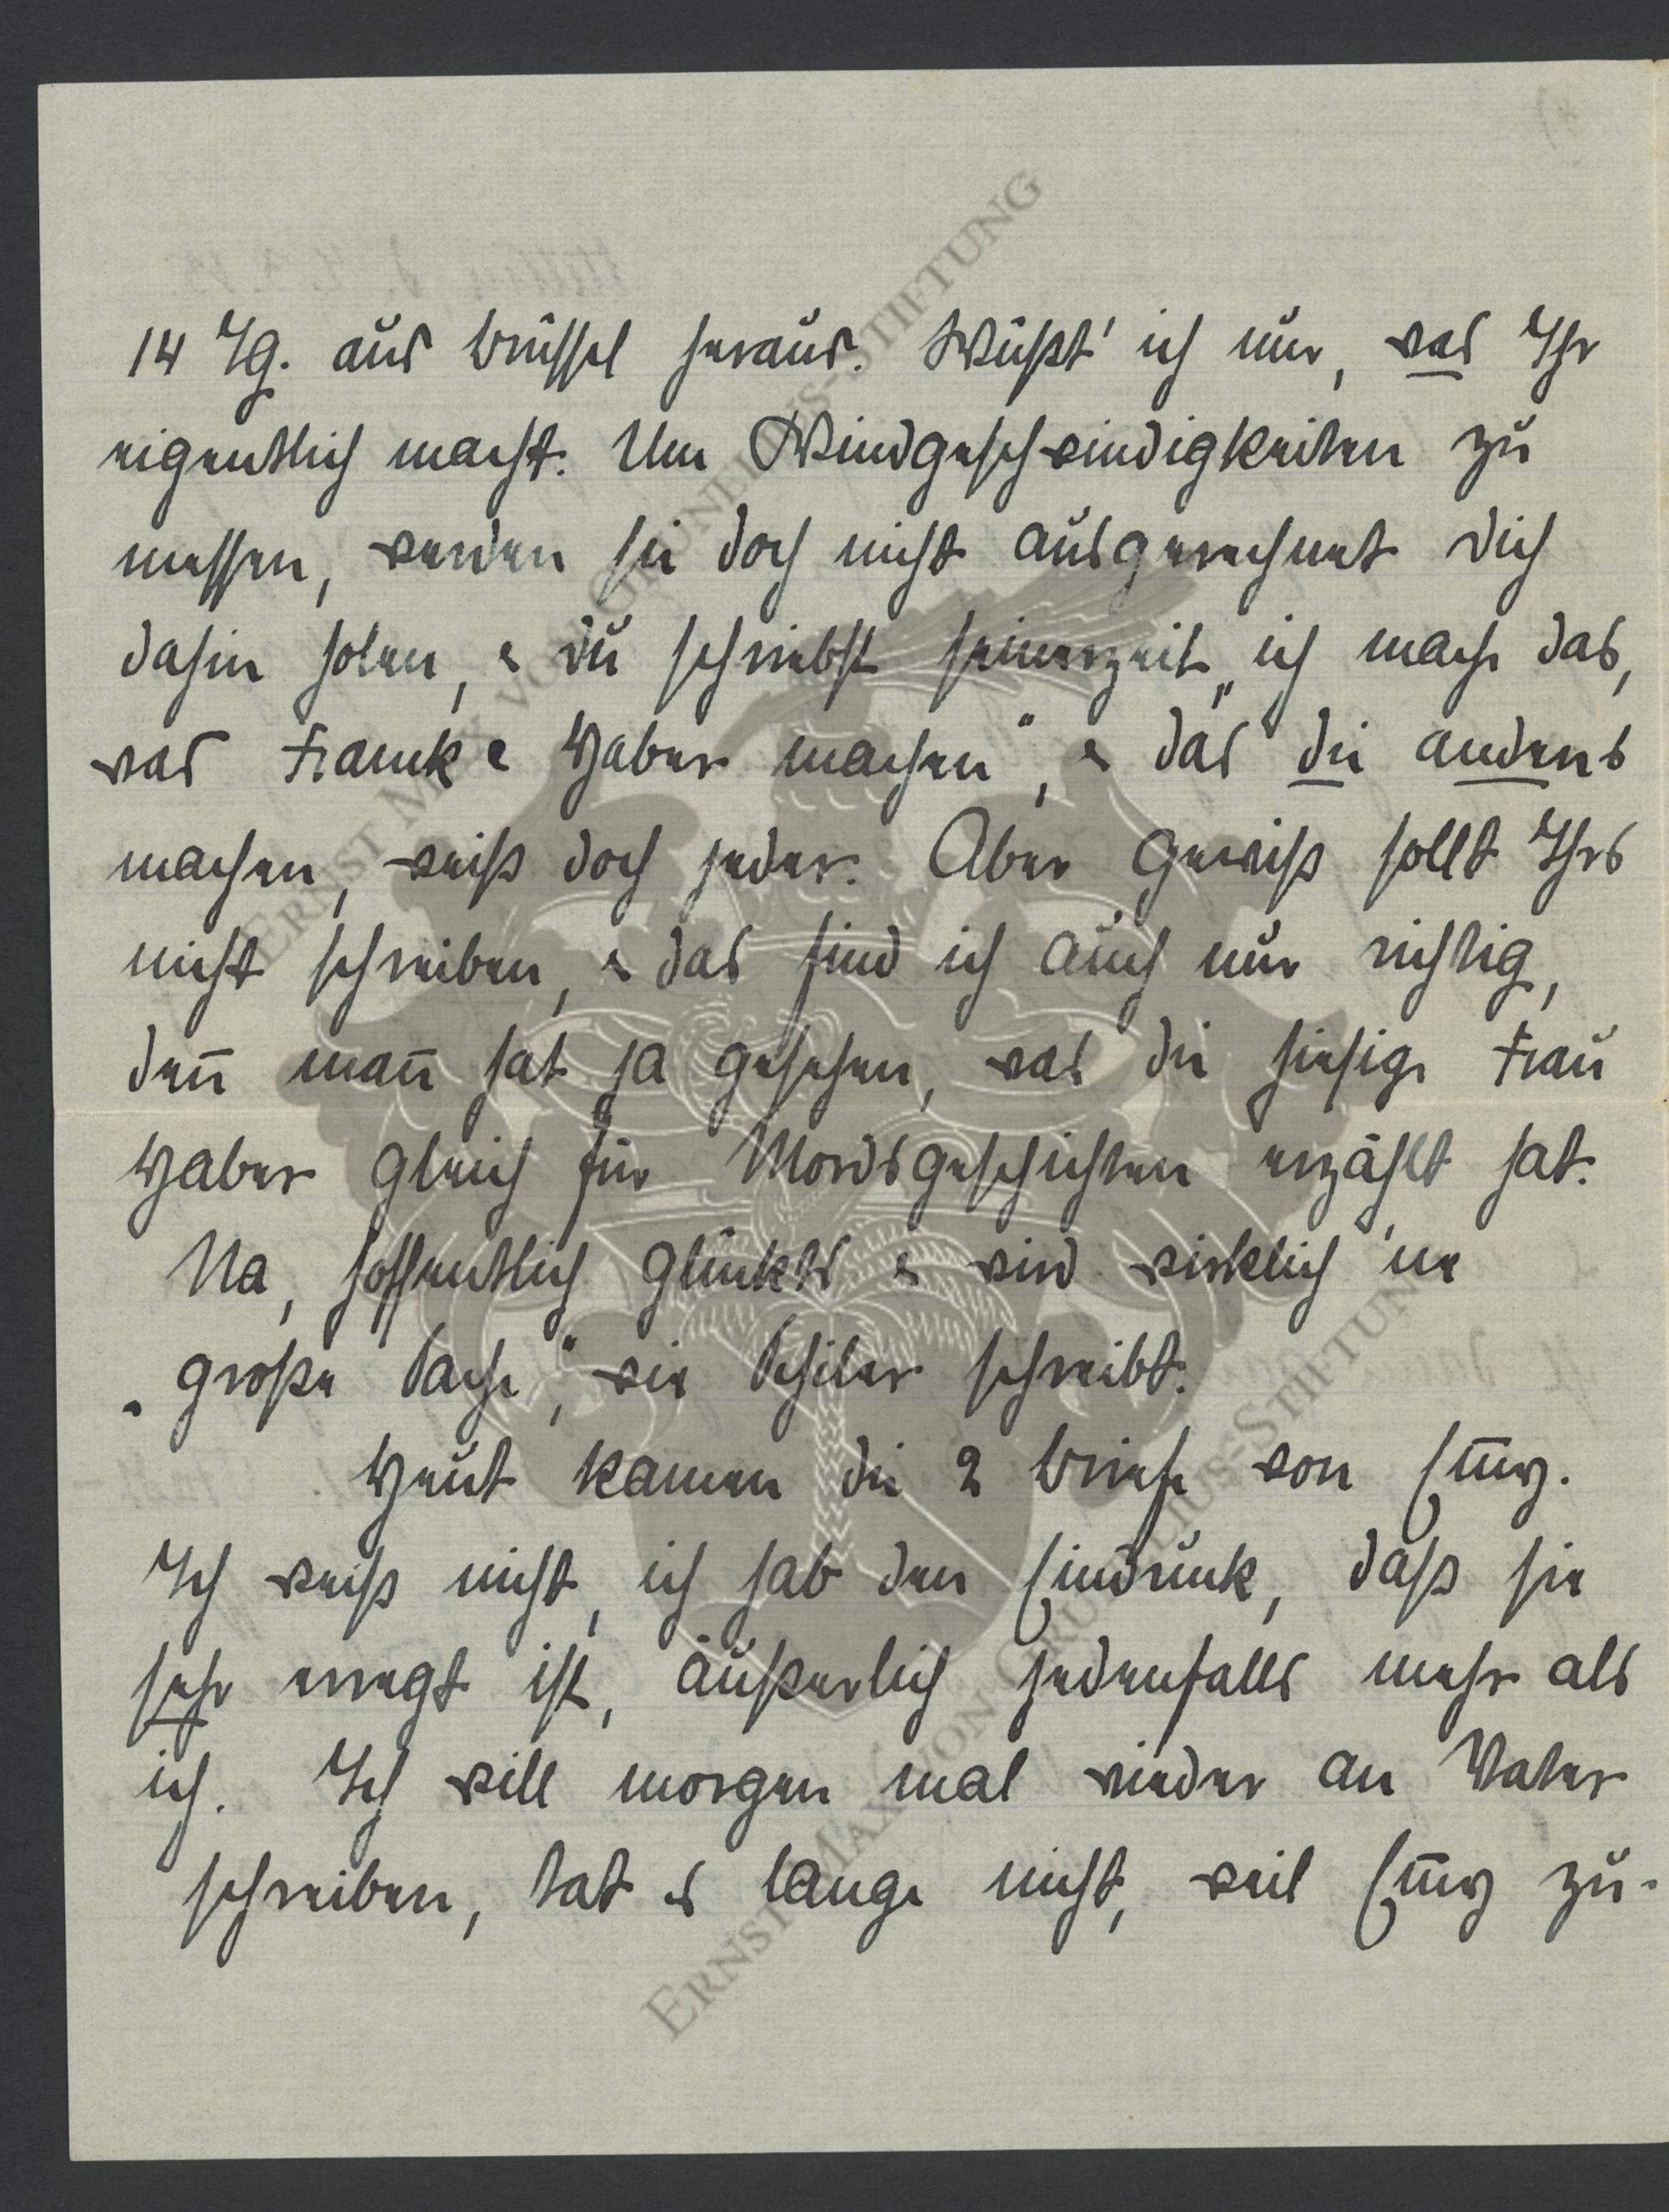 14 Tg. aus Brüssel heraus. Wüßt' ich nur, was Ihr
eigentlich macht. Um Windgeschwindigkeiten zu
messen, werden sie doch nicht ausgerechnet Dich
dahin holen, & Du schriebst seinerzeit „ich mache das,
was Franck & Haber machen", & das die anderes
machen, weiß doch jeder. Aber gewiß sollt Ihrs
nicht schreiben, & das find ich auch nur richtig,
den̅ man̅ hat ja gesehen, was die hiesige Frau
Haber gleich für Mordsgeschichten erzählt hat.
Na, hoffentlich glückts & wird wirklich 'ne
„große Sache", wie Schiler schreibt.
Heut kamen die 2 Briefe von Em̅y.
Ich weiß nicht, ich hab den Eindruck, daß sie
sehr erregt ist, äußerlich jedenfalls mehr als
ich. Ich will morgen mal wieder an Vater
schreiben, tat es lange nicht, weil Em̅y zu-
ERNST MAX VON GRUNELIUS-STIFTUNG
ERNST MAX VON GRUNELIUS-STIFTUNG